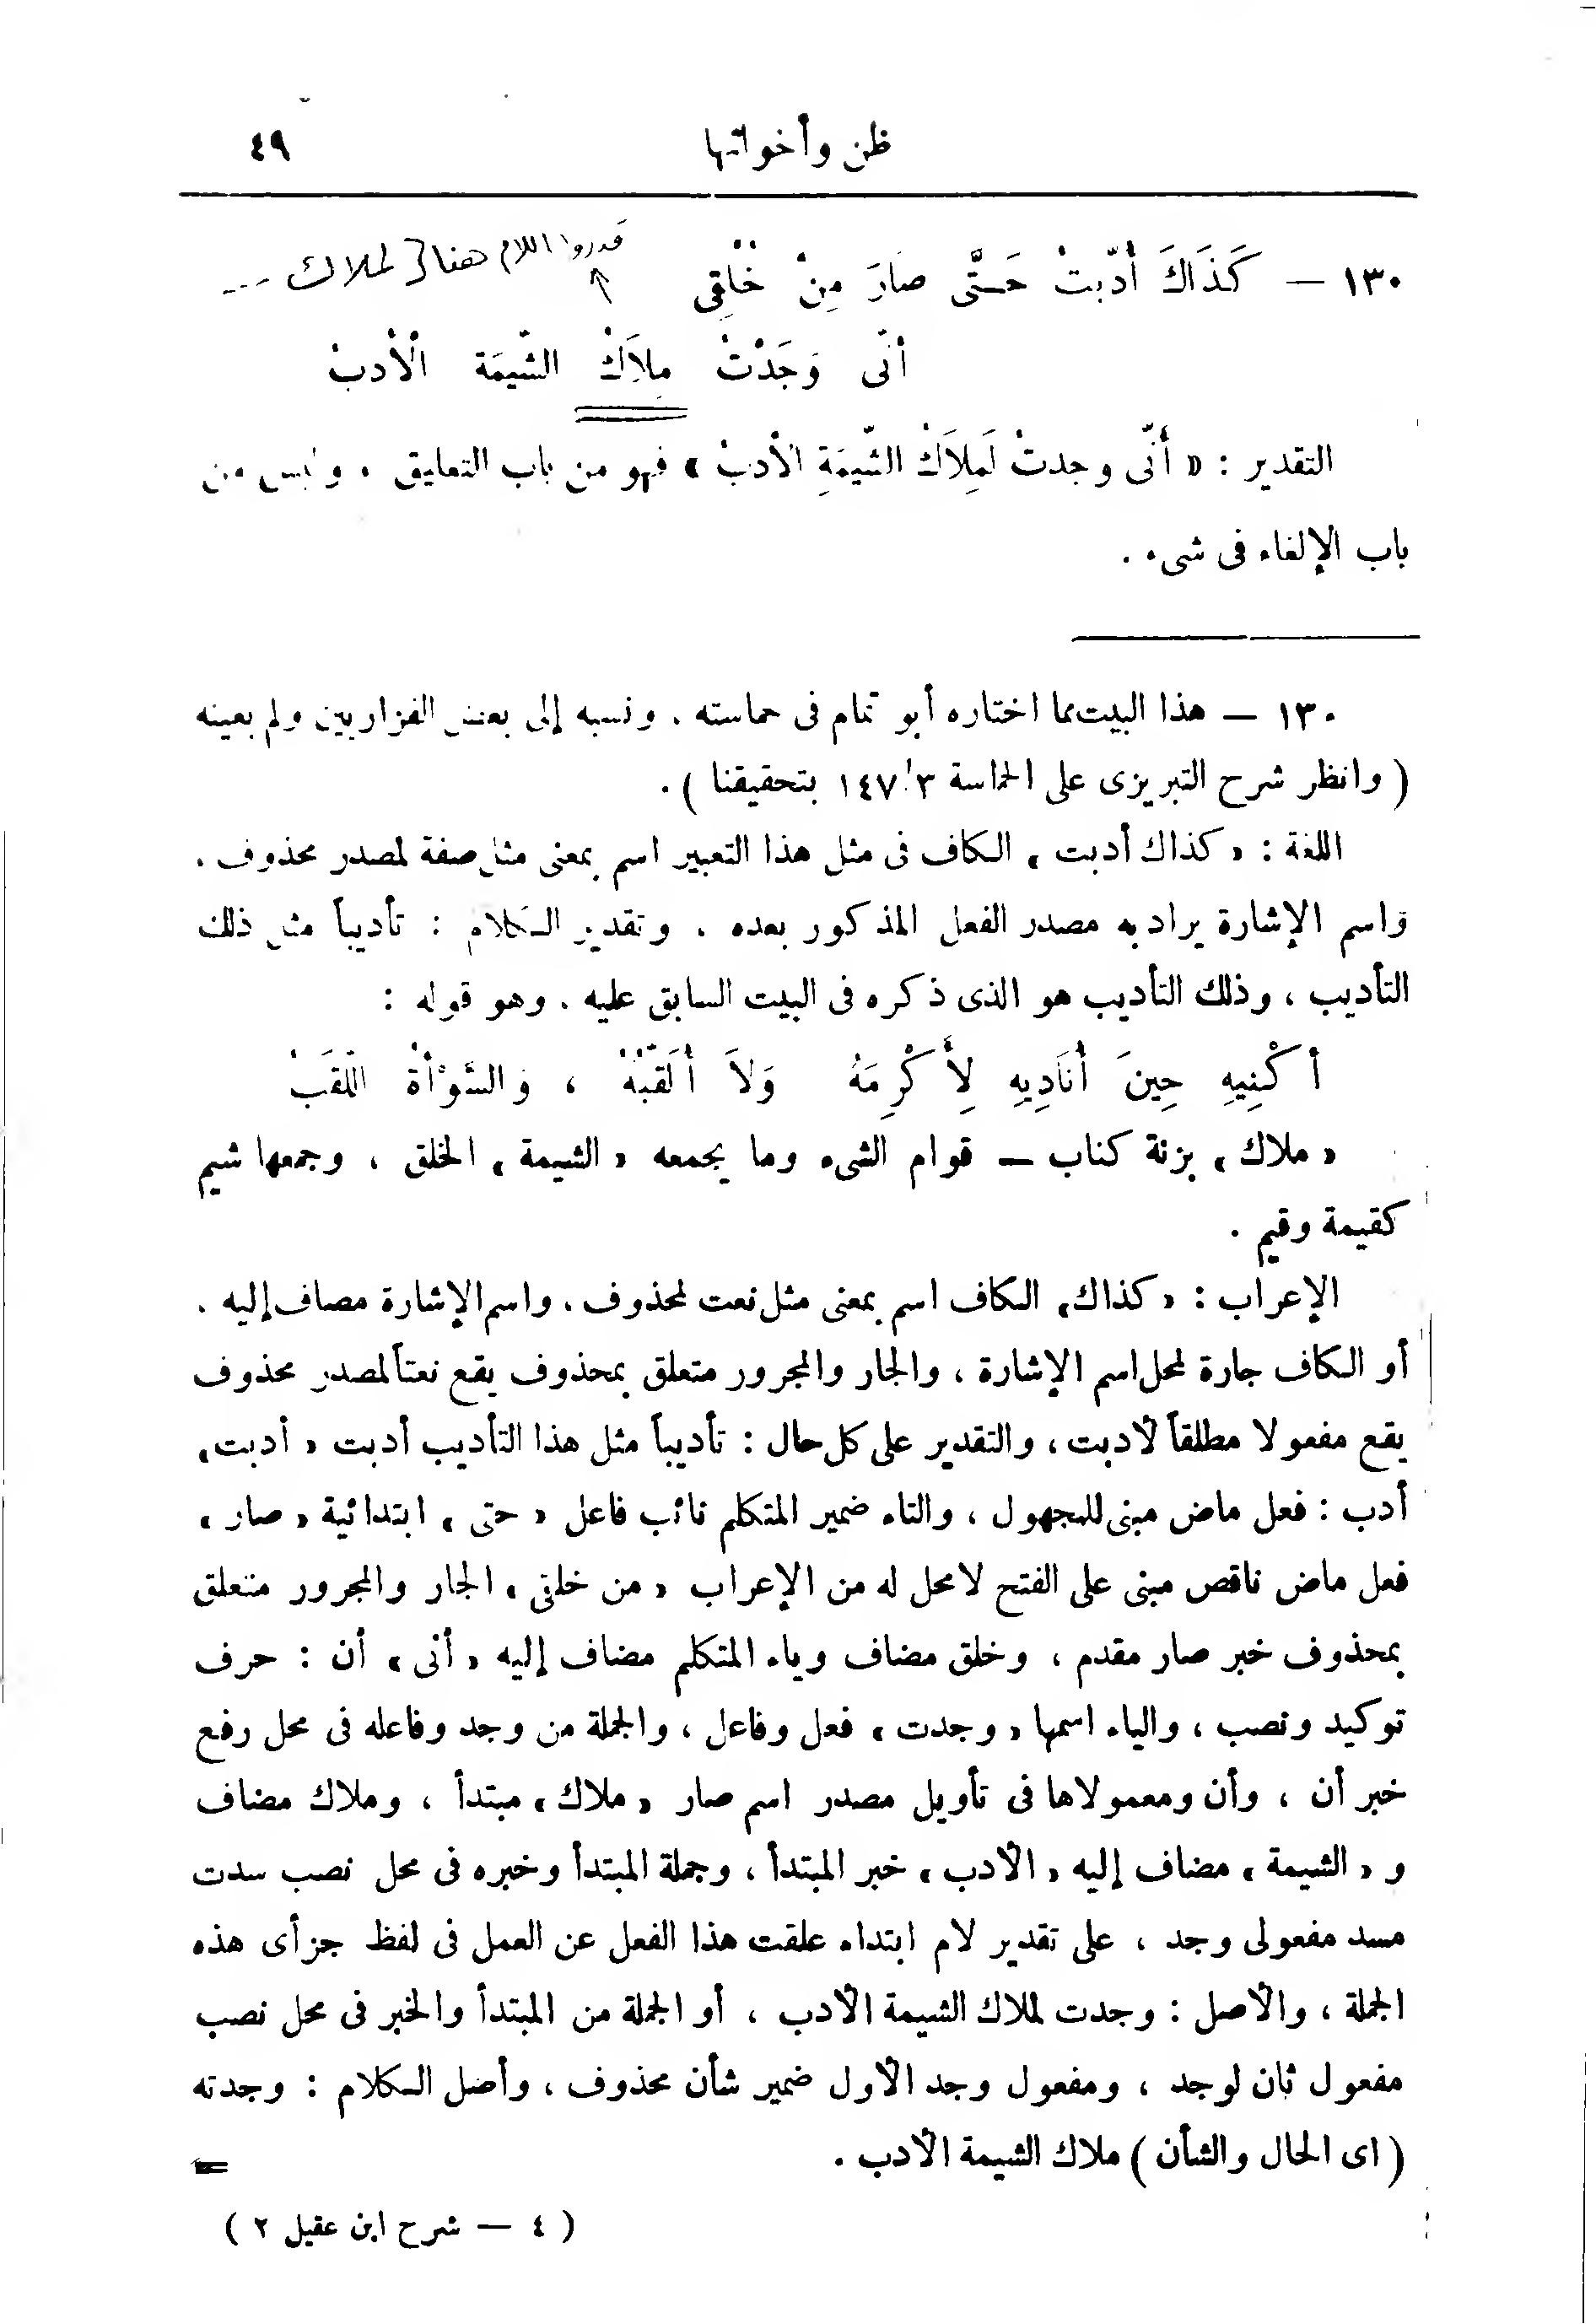 ظن وأخواتها ٤٩
قدروا اللام هنا لملاك ---
١٣٠ — كَذَاكَ أُدِّبْتُ حَـتَّى صَارَ مِنْ خُلُقِى
أَنِّى وَجَدْتُ مِلاَكُ الشِّيمَةِ الْأَدَبُ
التقدير : « أَنِّى وجدتُ لَمِلاَكُ الشِّيمَةِ الأدبُ » فهو من باب التعليق ، وليس من
باب الإلغاء فى شىء .
١٣٠ — هذا البيت مما اختاره أبو تمام فى حماسته ، ونسبه إلى بعض الفزاريين ولم يعينه
( وانظر شرح التبريزى على الحماسة ٣/ ١٤٧ بتحقيقنا ) .
اللغة : « كذاك أدبت » الكاف فى مثل هذا التعبير اسم بمعنى مثل صفة لمصدر محذوف ،
واسم الإشارة يراد به مصدر الفعل المذكور بعده ، وتقدير الكلام : تأديباً مثل ذلك
التأديب ، وذلك التأديب هو الذى ذكره فى البيت السابق عليه ، وهو قوله :
أَكْنِيهِ حِينَ أُنَادِيهِ لِأُكْرِمَهُ وَلاَ أُلَقِّبُهُ ، وَالسَّوْأَةُ اللَّقَبُ
« ملاك » بزنة كتاب — قوام الشىء وما يجمعه « الشيمة » الخلق ، وجمعها شيم
كقيمة وقيم .
الإعراب : « كذاك » الكاف اسم بمعنى مثل نعت لمحذوف ، واسم الإشارة مضاف إليه ،
أو الكاف جارة لمحل اسم الإشارة ، والجار والمجرور متعلق بمحذوف يقع نعتاً لمصدر محذوف
يقع مفعولا مطلقاً لأدبت ، والتقدير على كل حال : تأديباً مثل هذا التأديب أدبت « أدبت »
أدب : فعل ماض مبنى للمجهول ، والتاء ضمير المتكلم نائب فاعل « حتى » ابتدائية « صار »
فعل ماض ناقص مبنى على الفتح لا محل له من الإعراب « من خلقى » الجار والمجرور متعلق
بمحذوف خبر صار مقدم ، وخلق مضاف وياء المتكلم مضاف إليه « أنى » أن : حرف
توكيد ونصب ، والياء اسمها « وجدت » فعل وفاعل ، والجملة من وجد وفاعله فى محل رفع
خبر أن ، وأن ومعمولاها فى تأويل مصدر اسم صار « ملاك » مبتدأ ، وملاك مضاف
و « الشيمة » مضاف إليه « الأدب » خبر المبتدأ ، وجملة المبتدأ وخبره فى محل نصب سدت
مسد مفعولى وجد ، على تقدير لام ابتداء علقت هذا الفعل عن العمل فى لفظ جزأى هذه
الجملة ، والأصل : وجدت لملاك الشيمة الأدب ، أو الجملة من المبتدأ والخبر فى محل نصب
مفعول ثان لوجد ، ومفعول وجد الأول ضمير شأن محذوف ، وأصل الكلام : وجدته
( أى الحال والشأن ) ملاك الشيمة الأدب . =
( ٤ — شرح ابن عقيل ٢ )